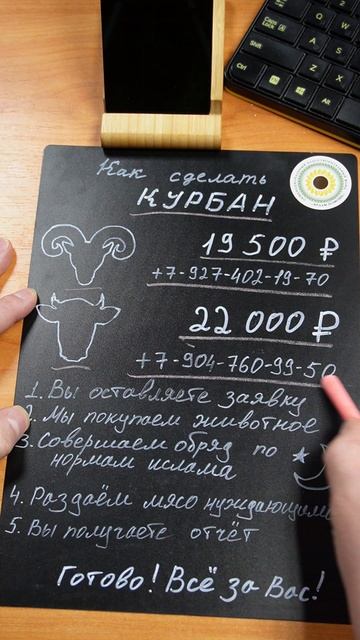 Как сделать
КУРБАН
19 500 ₽
+7-927-402-19-70
22 000 ₽
+7-904-760-99-50
1. Вы оставляете заявку
2. Мы покупаем животное
3. Совершаем обряд по
нормам ислама
4. Раздаём мясо нуждающимся
5. Вы получаете отчёт
Готово! Всё за Вас!
Q
W
Caps Lock
A
S
Shift
Z
X
Ctrl
Alt